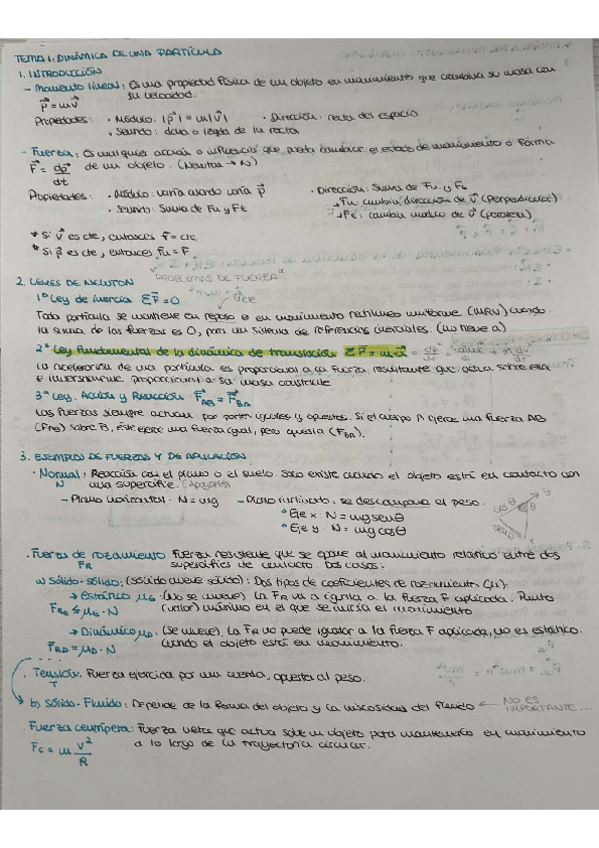 TEMA 1: DINÁMICA DE UNA PARTÍCULA
1. INTRODUCCIÓN
- Momento lineal: Es una propiedad física de un objeto en movimiento que combina su masa con
su velocidad.
p⃗ = mv⃗
Propiedades: · Módulo: |p⃗| = m|v⃗| · Dirección: recta del espacio
· Sentido: dcha o izqda de la recta
- Fuerza: Es cualquier acción o influencia que pueda cambiar el estado de movimiento o forma
F⃗ = dp⃗/dt de un objeto. (Newton → N)
Propiedades: · Módulo: varía cuando varía p⃗ · Dirección: Suma de Fn y Ft
· Sentido: Suma de Fn y Ft → Fn: cambia dirección de v⃗ (perpendicular)
→ Ft: cambia módulo de v⃗ (paralela)
* Si v⃗ es cte, entonces F = cte
* Si p⃗ es cte, entonces Fn = F
PROBLEMAS DE FUERZA
2. LEYES DE NEWTON
1ª Ley de inercia ΣF⃗ = 0 v cte
Toda partícula se mantiene en reposo o en movimiento rectilíneo uniforme (MRU) cuando
la suma de las fuerzas es 0, para un sistema de referencias inerciales. (no tiene a)
2ª Ley fundamental de la dinámica de translación ΣF⃗ = m·a⃗ = dp⃗/dt
La aceleración de una partícula es proporcional a la fuerza resultante que actúa sobre ella
e inversamente proporcional a su masa constante
3ª Ley. Acción y Reacción F⃗AB = F⃗BA
Las fuerzas siempre actúan por partes iguales y opuestas. Si el cuerpo A ejerce una fuerza AB
(FAB) sobre B, éste ejerce una fuerza igual, pero opuesta (FBA).
3. EJEMPLOS DE FUERZAS Y DE APLICACIÓN
· Normal: Reacción con el plano o el suelo. Solo existe cuando el objeto está en contacto con
N una superficie. (Apoyarlo)
- Plano horizontal · N = mg - Plano inclinado: se descompone el peso.
° Eje x · N = mg senθ
° Eje y · N = mg cosθ
cosθ θ y x
· Fuerza de rozamiento Fuerza resistente que se opone al movimiento relativo entre dos
FR superficies de contacto. Dos casos:
a) Sólido-sólido: (sólido mueve sólido): Dos tipos de coeficientes de rozamiento (μ):
→ Estático μE: (No se mueve). La FR va a igualar a la fuerza F aplicada. Punto
FRE ≤ μE · N (valor) máximo en el que se inicia el movimiento
→ Dinámico μD: (se mueve). La FR no puede igualar a la fuerza F aplicada, no es estático.
F⃗RD = μD · N cuando el objeto está en movimiento.
· Tensión: Fuerza ejercida por una cuerda, opuesta al peso.
T
b) Sólido - Fluido: Depende de la forma del objeto y la viscosidad del fluido ← NO ES IMPORTANTE...
Fuerza centrípeta: Fuerza neta que actúa sobre un objeto para mantenerlo en movimiento
Fc = m v²/R a lo largo de la trayectoria circular.